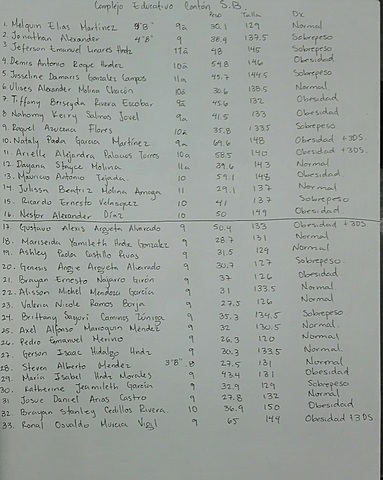 Complejo Educativo Cantón S.B.
Peso Talla Dx
1. Melquin Elias Martínez 3"B" 9a 30.1 129 Normal
2. Jonathan Alexander 4"B" 9 38.4 137.5 Sobrepeso
3. Jeferson Emanuel Linares Hndz 11a 48 145 Sobrepeso
4. Dennis Antonio Roque Hndez 10a 54.8 146 Obesidad
5. Josseline Damaris Gonzales Campos 11a 45.7 144.5 Sobrepeso
6. Ulises Alexander Molina Chacón 10a 30.6 138.5 Normal
7. Tiffany Briseyda Rivera Escobar 9a 45.6 132 Obesidad
8. Kerry Salinas Jovel 9a 41.5 133 Obesidad
9. Raquel Asucena Flores 10a 35.8 133.5 Sobrepeso
10. Nataly Paola Garcia Martínez 9a 64.6 148 Obesidad +3DS.
11. Arielle Alejandra Palacios Torres 10a 58.5 140 Obesidad +3DS.
12. Dayana Molina 11a 39.6 143 Normal
13. Mauricio Antonio Tejada 10 59.1 148 Obesidad
14. Julissa Beatriz Molina 11 29.1 137 Normal
15. Ricardo Ernesto Velasquez 10 41 137 Sobrepeso
16. Nestor Alexander Díaz 10 50 149 Obesidad
17. Gustavo Alexis Argueta Alvarado 9 50.4 133 Obesidad +3DS.
18. Yamileth Hndz Gonzalez 9 28.7 131 Normal
19. Ashley Paola Castillo Rivas 9 31.5 129 Normal
20. Genesis Angie Argueta Alvarado 9 30.7 127 Sobrepeso
21. Brayan Ernesto Najarro Girón 9 37 126 Obesidad
22. Alisson Michel Mendoza García 9 31 133.5 Normal
23. Valeria Nicole Ramos Borja 9 27.5 126 Normal
24. Brittany Sayuri Caminos Zúniga 9 35.3 134.5 Sobrepeso
25. Axel Alfonso Marroquin Méndez 9 32 130.5 Normal
26. Pedro Emanuel Merino 9 26.3 120 Normal
27. Gerson Isaac Hidalgo Hndz 9 30.3 133.5 Normal
28. Steven Alberto Mendez 3"B" 8 27.5 131 Normal
29. Maria Isabel Hndz Morales 9 43.4 131 Obesidad
30. Katherine Jeamileth Garcia 9 32.9 129 Sobrepeso
31 Josue Daniel Arias Castro 9 27.8 132 Normal
32. Brayan Stanley Cedillos Rivera 10 36.9 150 Obesidad
33. Ronal Osvaldo Murcia 9 65 149 Obesidad +3DS